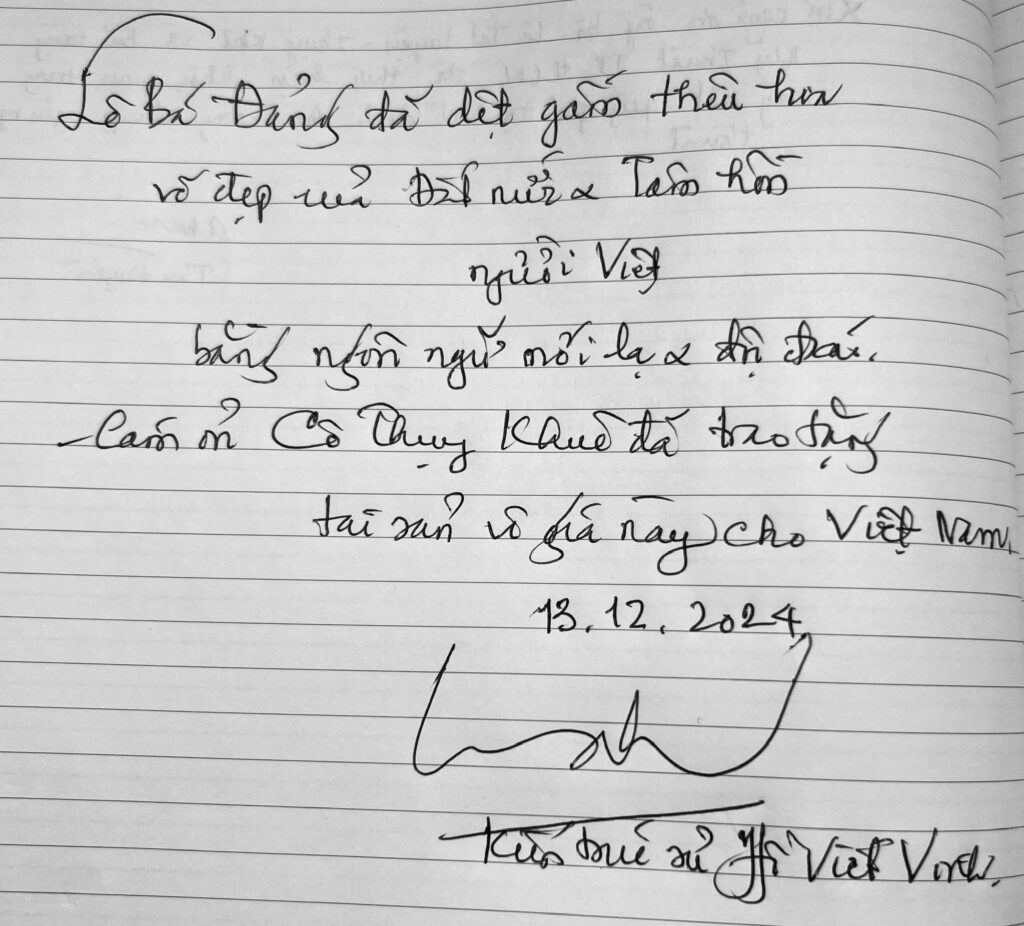 Lê Bá Đảng đã dệt gấm thêu hoa
vẻ đẹp của Đất nước & Tâm hồn
người Việt
bằng ngôn ngữ mới lạ & độc đáo.
- Cảm ơn Cô Thụy Khuê đã trao tặng
tài sản vô giá này cho Việt Nam.
13.12.2024
Kiến trúc sư Hồ Viết Vinh.